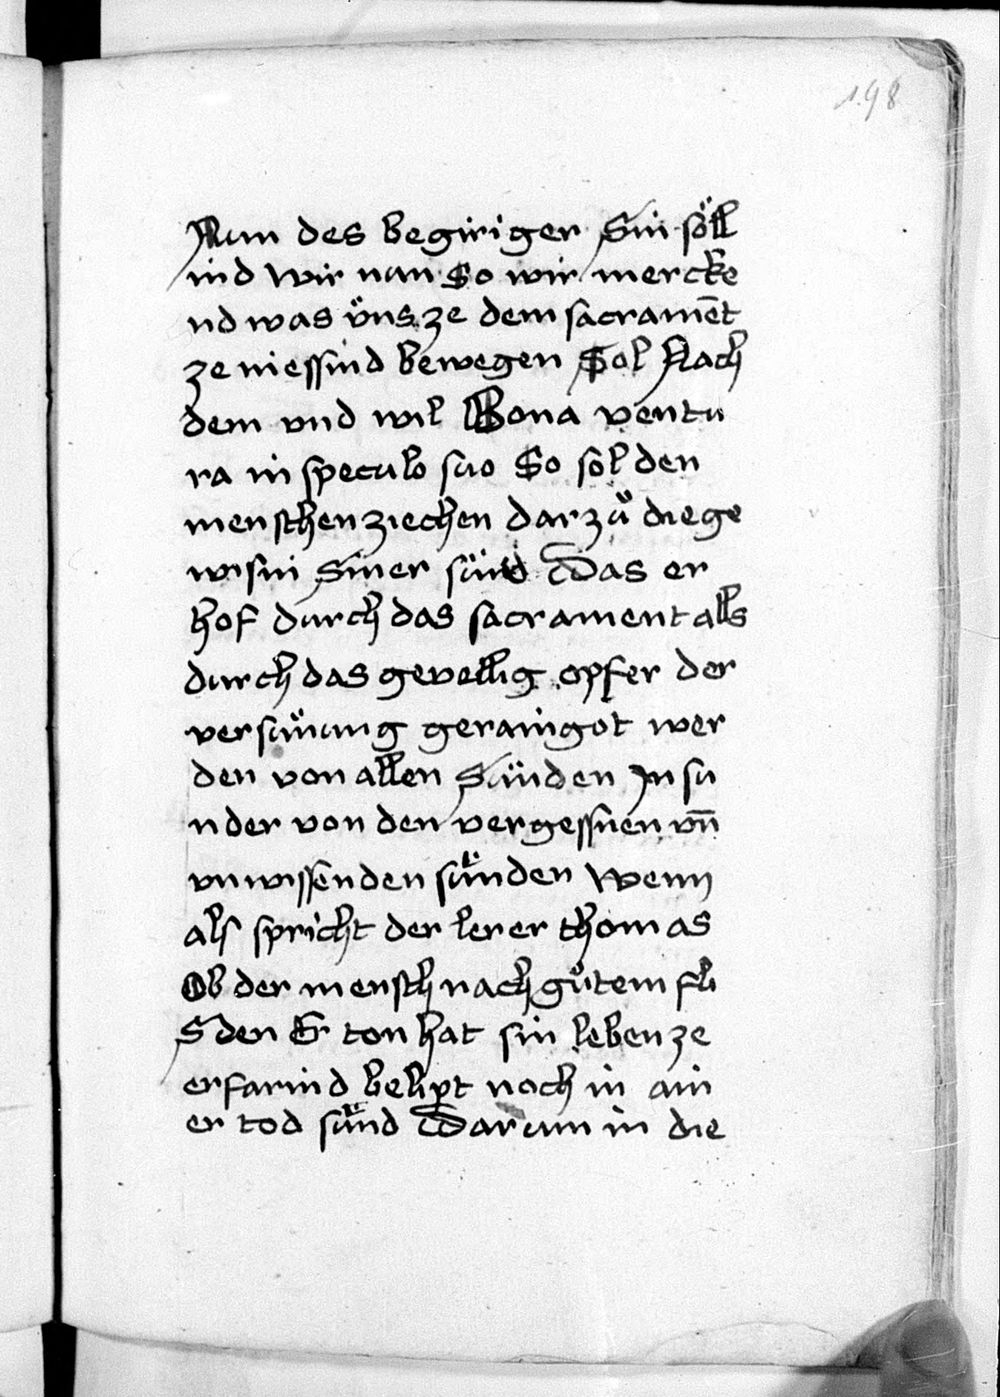 198
Nun des begiriger Sin söll
ind wir nun So wir mercke
nd was v̈ns ze dem sacramēt
ze niessind bewegen Sol Nach
dem vnd wil Bona ventu
ra in speculo suo So sol den
menschen ziechen darzů die ge
wisni Siner sünd Das er
hof durch das sacrament alls
durch das gevellig opfer der
versünung geraingot wer
den von allen Sünden In su
nder von den vergessnen vn̄
vnwissenden sünden Wenn
als spricht der lerer thomas
Ob der mensch nach gůtem fli
S den Er ton hat sin leben ze
erfarind belipt noch in ain
er tod sünd Darum in die